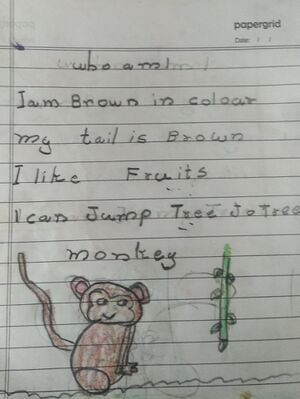 papergrid
Date: / /
who am I
I am Brown in colour
my tail is Brown
I like Fruits
I can Jump Tree To Tree
monkey